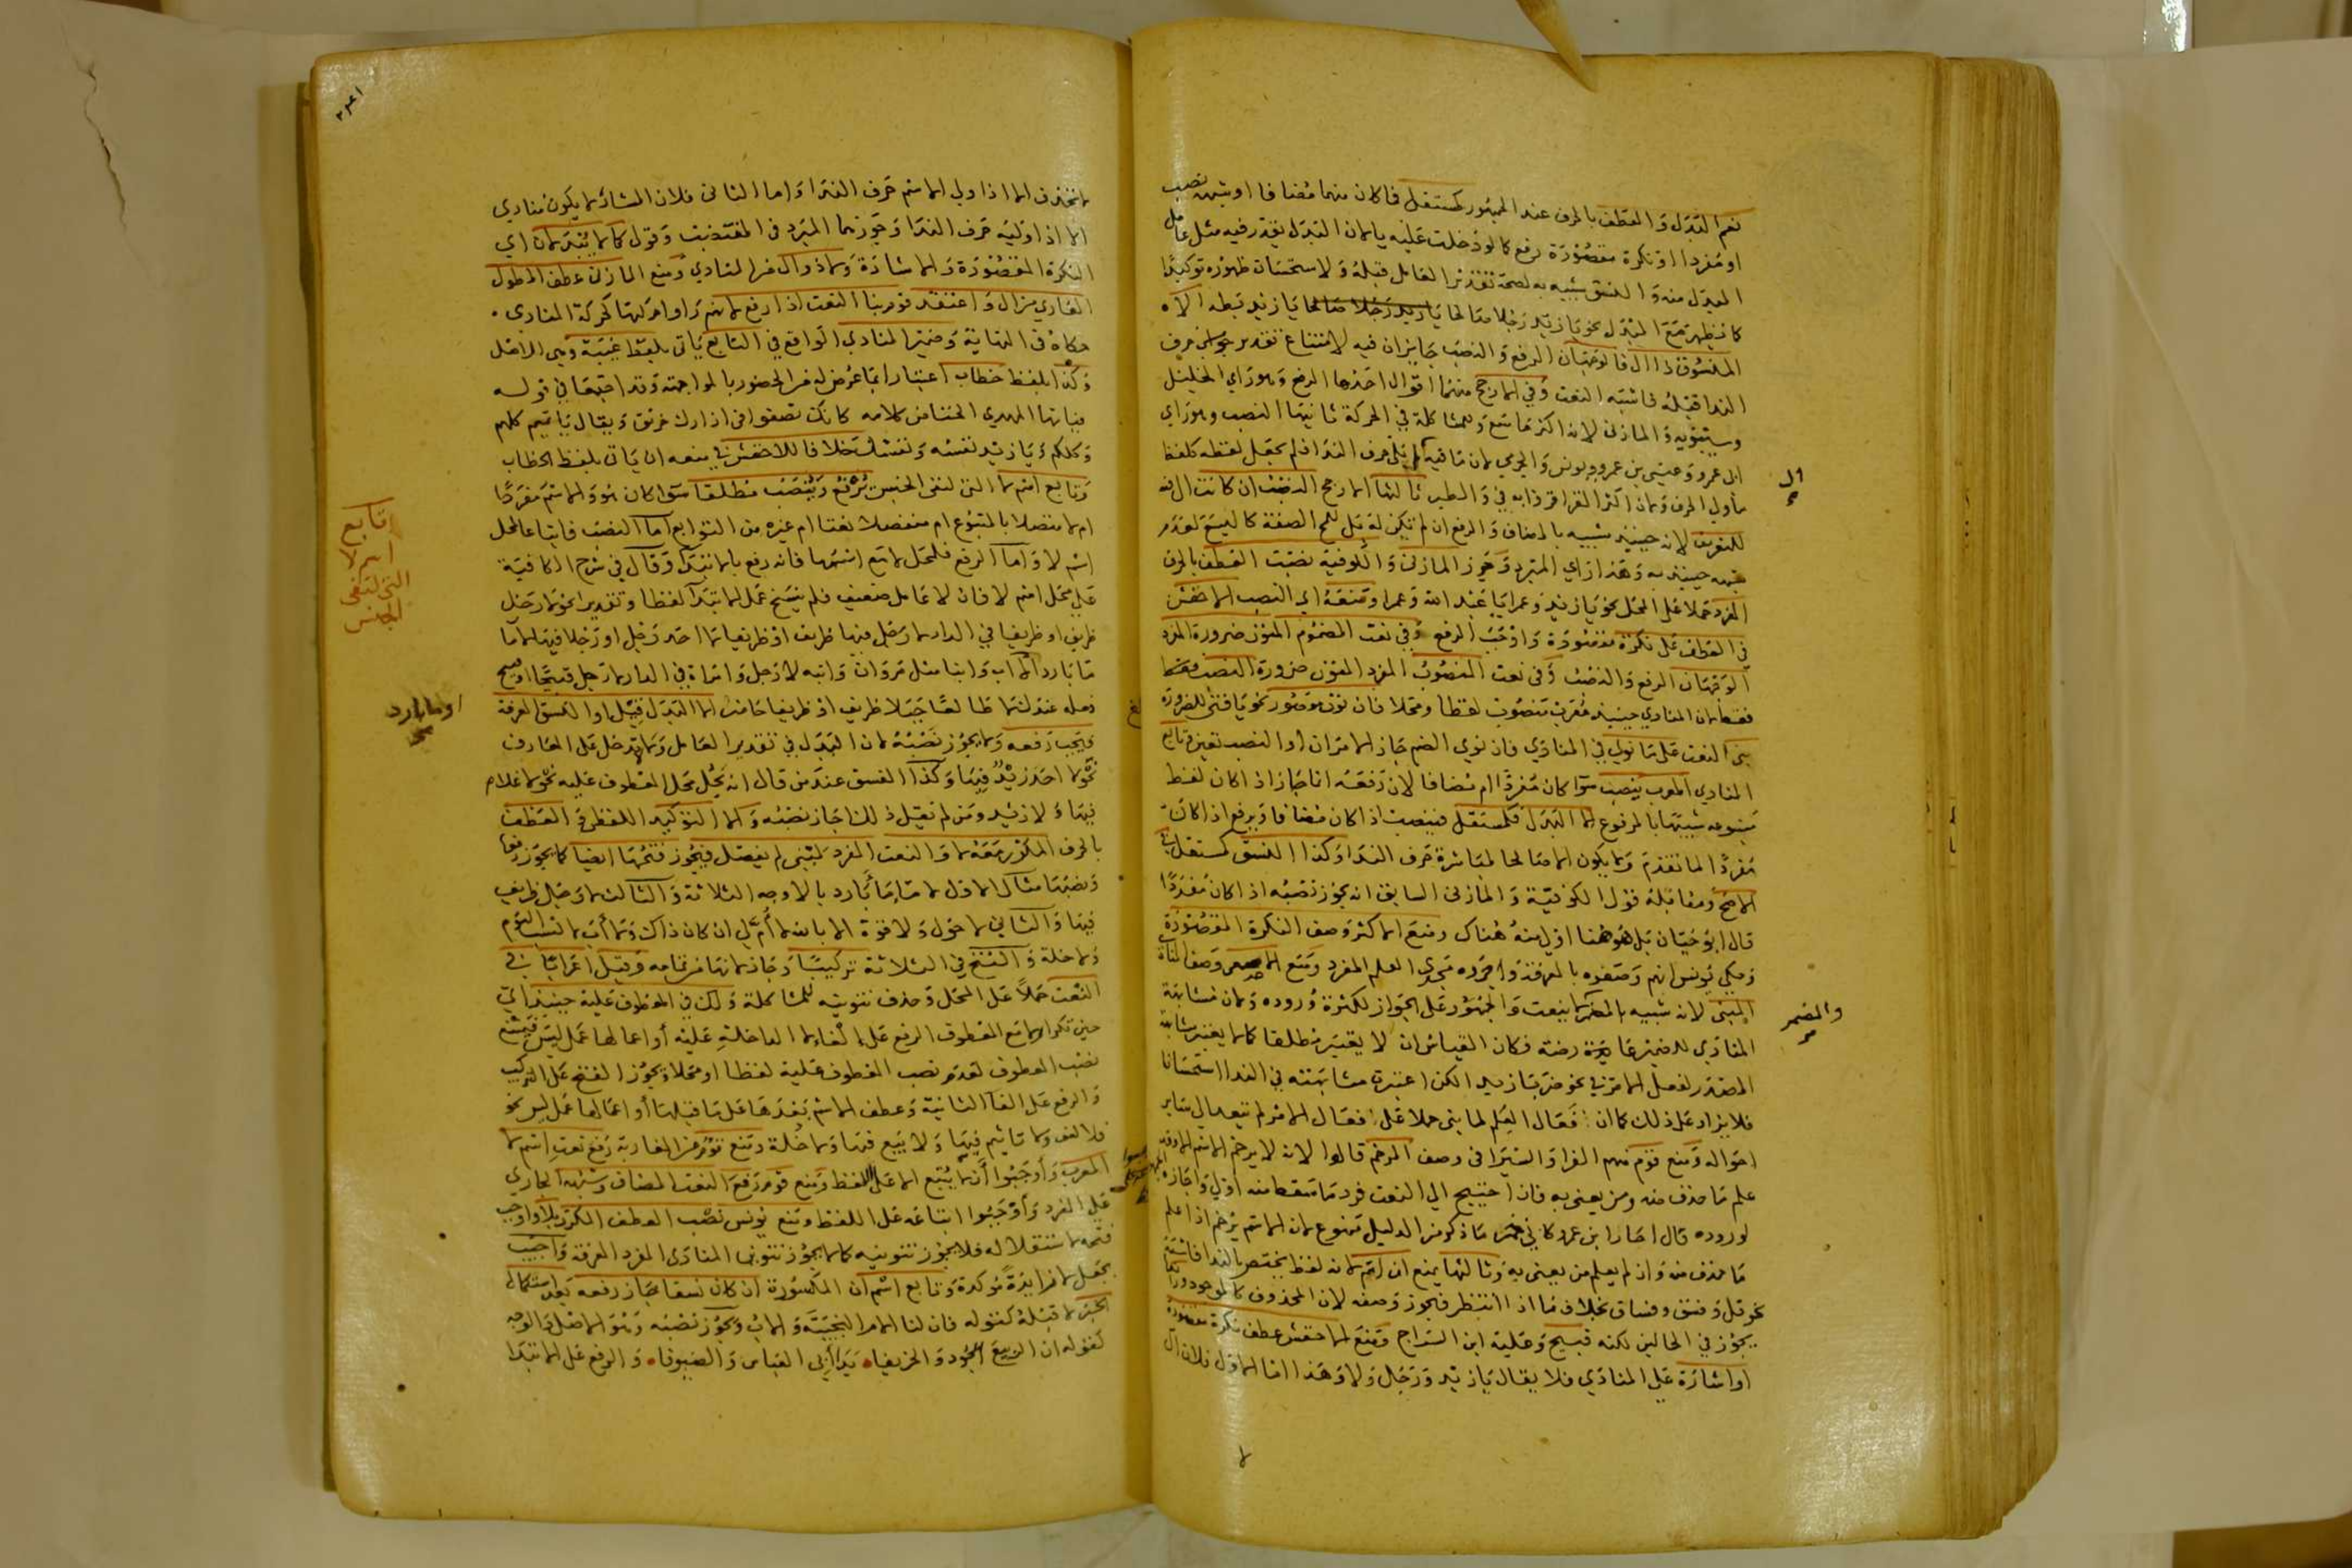 نعم البدل والعطف بالحرف عند الجمهور كمستقل فما كان منهما مضافا او شبهه نصب
او مفردا او نكرة مقصودة رفع كما لو دخلت عليه يا لان البدل يقدر فيه مثل عامل
المبدل منه والنسق شبيه به لصحة تقدير العامل قبله ولاستحسان ظهوره توكيدا
كما يظهر مع البدل نحو يا زيد رجلا صالحا يا زيد بطة الا
المنسوق ذا ال فالوجهان الرفع والنصب جايزان فيه لامتناع تقدير حرف
الندا قبله فاشبه النعت وفي الارجح منهما اقوال احدها الرفع وهو راي الخليل
وسيبويه والمازني لانه اكثر ما سمع وللمشاكلة في الحركة ثانيها النصب وهو راي
ابي عمرو وعيسى بن عمرو ويونس والجرمي لان ما فيه ال لم يلي حرف الندا فلم يجعل لفظه كلفظ
ما ولي الحرف ولان اكثر القرا قروا به في والطير ثالثها الارجح النصب ان كانت ال فيه
للتعريف لانه حينيذ شبيه بالمضاف والرفع ان لم تكن له بل للمح الصفة كاليسع لعدم
شبهه حينيذ به وهذا راي المبرد وجوز المازني والكوفية نصب العطف بالحرف
المفرد حملا على المحل نحو يا زيد وعمرا يا عبد الله وعمرا ومنعه اي النصب الاخفش
في العطف على نكرة مقصودة واوجب الرفع وفي نعت المضموم المنون ضرورة المفرد
الوجهان الرفع والنصب وفي نعت المنصوب المفرد المنون ضرورة النصب فقط
لان المنادي حينيذ معرب منصوب لفظا ومحلا فان نون مقصور نحو يا فتى للضرورة
بنى النعت على ما نوي في المنادي فان نوي الضم جاز الامران او النصب تعين وتابع
المنادي المعرب ينصب سوا كان مفردا ام مضافا لان رفعه انما جاز اذ كان لفظ
متبوعه شبيها بالمرفوع الا البدل فكمستقل فينصب اذ كان مضافا ويرفع اذ كان
مفردا لما تقدم ولا يكون الا صالحا لمباشرة حرف الندا وكذا النسق كمستقل في
الاصح ومقابله قول الكوفية والمازني السابق انه يجوز نصبه اذا كان مفردا
قال ابو حيان بل هو هنا اولى منه هناك ومنع الاكثر وصف النكرة المقصودة
وحكي يونس انهم وصفوه بالمعرفة واجروه مجرى العلم المفرد ومنع الاصمعي وصف المنادي
المبني لانه شبيه بالمضمر لا ينعت والجمهور على الجواز لكثرة وروده ولان مشابهة
المنادي للضمير عارضة فكان القياس ان لا يعتبر مطلقا كما لا يعتبر مشابهة
المصدر لفعل الامر في نحو ضربا زيدا لكن اعتبرت مشابهته في الندا استحسانا
فلا يزاد على ذلك كما ان فعال العلم لما بني حملا على فعال الامر لم يتعد الى ساير
احواله ومنع قوم منهم الفرا والسيرافي وصف المرخم قالوا لانه لا يرخم الاسم الا وقد
علم ما حذف منه ومن يعنى به فان احتيج الى النعت فرد ما سقط منه اولى واجازه
لوروده قال احار ابن عمرو كاني خمر وما ذكر من الدليل ممنوع لان الاسم يرخم اذا علم
ما حذف منه وان لم يعلم من يعنى به وثالثها يمنع ان لانه لفظ يختص بالندا
نحو فل وفسق وفساق بخلاف ما اذا انتظر فيجوز وصفه لان المحذوف كالموجود
يجوز في الحالين لكنه قبيح وعليه ابن السراج ومنع الاخفش عطف نكرة مقصودة
او اشارة على المنادي فلا يقال يا زيد ورجل ولا وهذا اما الاول فلان ال
ال
والمضمر
لا تحذف الا اذا ولي الاسم حرف الندا واما الثاني فلان المشار لا يكون منادي
الا اذ اوليه حرف الندا وجوزهما المبرد في المقتضب وقول كما لا يبعد بان اي
النكرة المقصودة والاشارة ولا ذو ال من المنادي ومنع المازني عطف المطول
العاري من ال واعتقد قوم بنا النعت اذا رفع لانهم راوا حركتها كحركة المنادي
حكاه في النهاية وضمير المنادي الواقع في التابع ياتي بلفظ غيبة وهي الاصل
وكذا بلفظ خطاب اعتبارا بما عرض له من الحضور بالمواجهة وقد اجتمعا في قوله
فياايها المهدي الخنا من كلامه كانك تضغوا في ازارك خرنق ويقال يا تميم كلهم
وكلكم ويا زيد نفسه ونفسك خلافا للاخفش في منعه ان ياتي بلفظ الخطاب
وتابع اسم لا التي لنفي الجنس يرفع وينصب مطلقا سوا كان هو والاسم مفردا
ام لا متصلا بالمتبوع ام منفصلا نعتا ام غيره من التوابع اما النصب فاتباعا لمحل
اسم لا واما الرفع فلمحل لا مع اسمها فانه رفع بالابتدا وقال في شرح الكافية
على محل اسم لا فان لا عامل ضعيف فلم ينسخ عمل الابتدا لفظا وتقديرا نحو لا رجل
ظريف او ظريفا في الدار لا رجل فيها ظريف او ظريفا لا احد رجل او رجلا فيها لا ما
ما باردا لا اب وابنا مثل مروان وابنه لا رجل وامراة في الدار لا رجل قبيحا او قبيح
فعله عندك لا طالعا جبلا ظريف او ظريفا حاضر الا البدل قيل او النسق المعرفة
فيجب رفعه ولا يجوز نصبه لان البدل في تقدير العامل ولا تدخل على المعارف
نحو لا احد زيد فيها وكذا النسق عند من قال انه يحل محل المعطوف عليه نحو لا غلام
فيها ولا زيد ومن لم يقل ذلك اجاز نصبه والا التوكيد اللفظي في العطف
بالحرف المكرر معه لا والنعت المفرد لمبني لم يفصل فيجوز فتحها ايضا كما يجوز رفعها
ونصبها مثال الاول لا ماء ماء بارد بالاوجه الثلاثة والثالث لا رجل ظريف
فيها والثاني لا حول ولا قوة الا بالله لا ام لي ان كان ذاك ولا اب لا نسب اليوم
ولا خلة والفتح في الثلاثة تركيبا وجاز لانها من تمامه وقيل اعرابا في
النعت حملا على المحل وحذف تنوينه للمشاكلة ولك في المعطوف عليه حينيذ اي
حين تكرار لا مع المعطوف الرفع على الغاء لا الداخلة عليه او اعمالها عمل ليس فيمتنع
نصب المعطوف لعدم نصب المعطوف عليه لفظا او محلا ويجوز الفتح على التركيب
والرفع على الغا الثانية وعطف الاسم بعدها على ما قبلها او اعمالها عمل ليس نحو
فلا لغو ولا تاثيم فيها ولا بيع فيها ولا خلة ومنع قوم من المغاربة رفع نعت اسم لا
المعرب واوجبوا انه لا يتبع الا على اللفظ ومنع قوم رفع النعت المضاف وشبهه الجاري
على المفرد واوجبوا اتباعه على اللفظ ومنع يونس نصب العطف المكرر بلا واوجب
فتحه لاستقلاله فلا يجوز تنوينه كما لا يجوز تنوين المنادي المفرد المعرفة واجيب
بجعل لا مزايدة موكدة وتابع اسم ان المكسورة ان كان نسقا جاز رفعه بعد استكمال
الخبر لا قبله كقوله فان لنا الام النجيبة والاب ويجوز نصبه وهو الاصل والوجه
كقوله ان الربيع الجود والخريفا يدا ابي العباس والضيوفا والرفع على الابتدا
تابع
اسم لا
التي لنفي
الجنس
او ما بارد